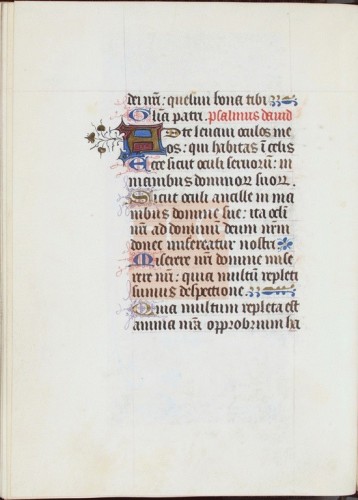 dei nr̄i: quesiui bona tibi
Gl̄ia patri. psalmus dauid
Ad te leuaui oculos me
os: qui habitas ī celis
Ecce sicut oculi seruorū: in
manibus dominoꝝ suoꝝ.
Sicut oculi ancille in ma
nibus domine sue: ita ocl̄i
nr̄i ad dominū deum nr̄m
donec misereatur nostri
Miserere nr̄i domine mise
rere nr̄i: quia multū repleti
sumus despectione
Quia multum repleta est
anima nr̄a opprobrium ha